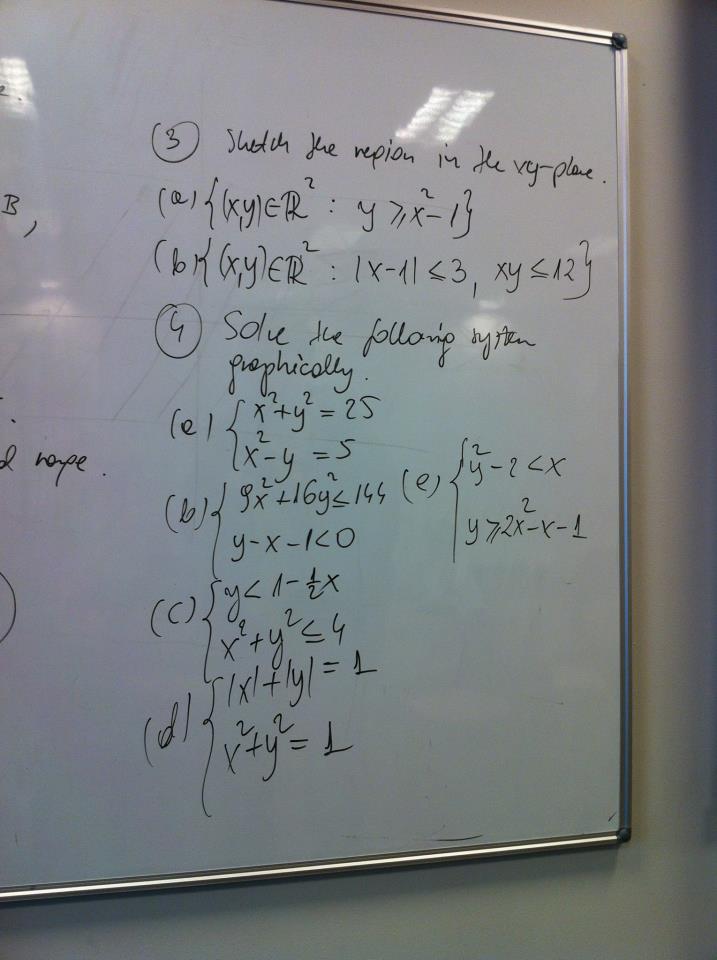 e.
B,
d range.
(3) Sketch the region in the xy-plane.
(a) {(x,y)∈ℝ² : y ⩾ x²-1}
(b) {(x,y)∈ℝ² : |x-1| ≤ 3, xy ≤ 12}
(4) Solve the following system
graphically.
(a) { x²+y² = 25
x²-y = 5
(b) { 9x²+16y² ≤ 144
y-x-1<0
(c) { y < 1-½x
x²+y² ≤ 4
(d) { |x|+|y| = 1
x²+y² = 1
(e) { y²-2 < x
y ⩾ 2x²-x-1